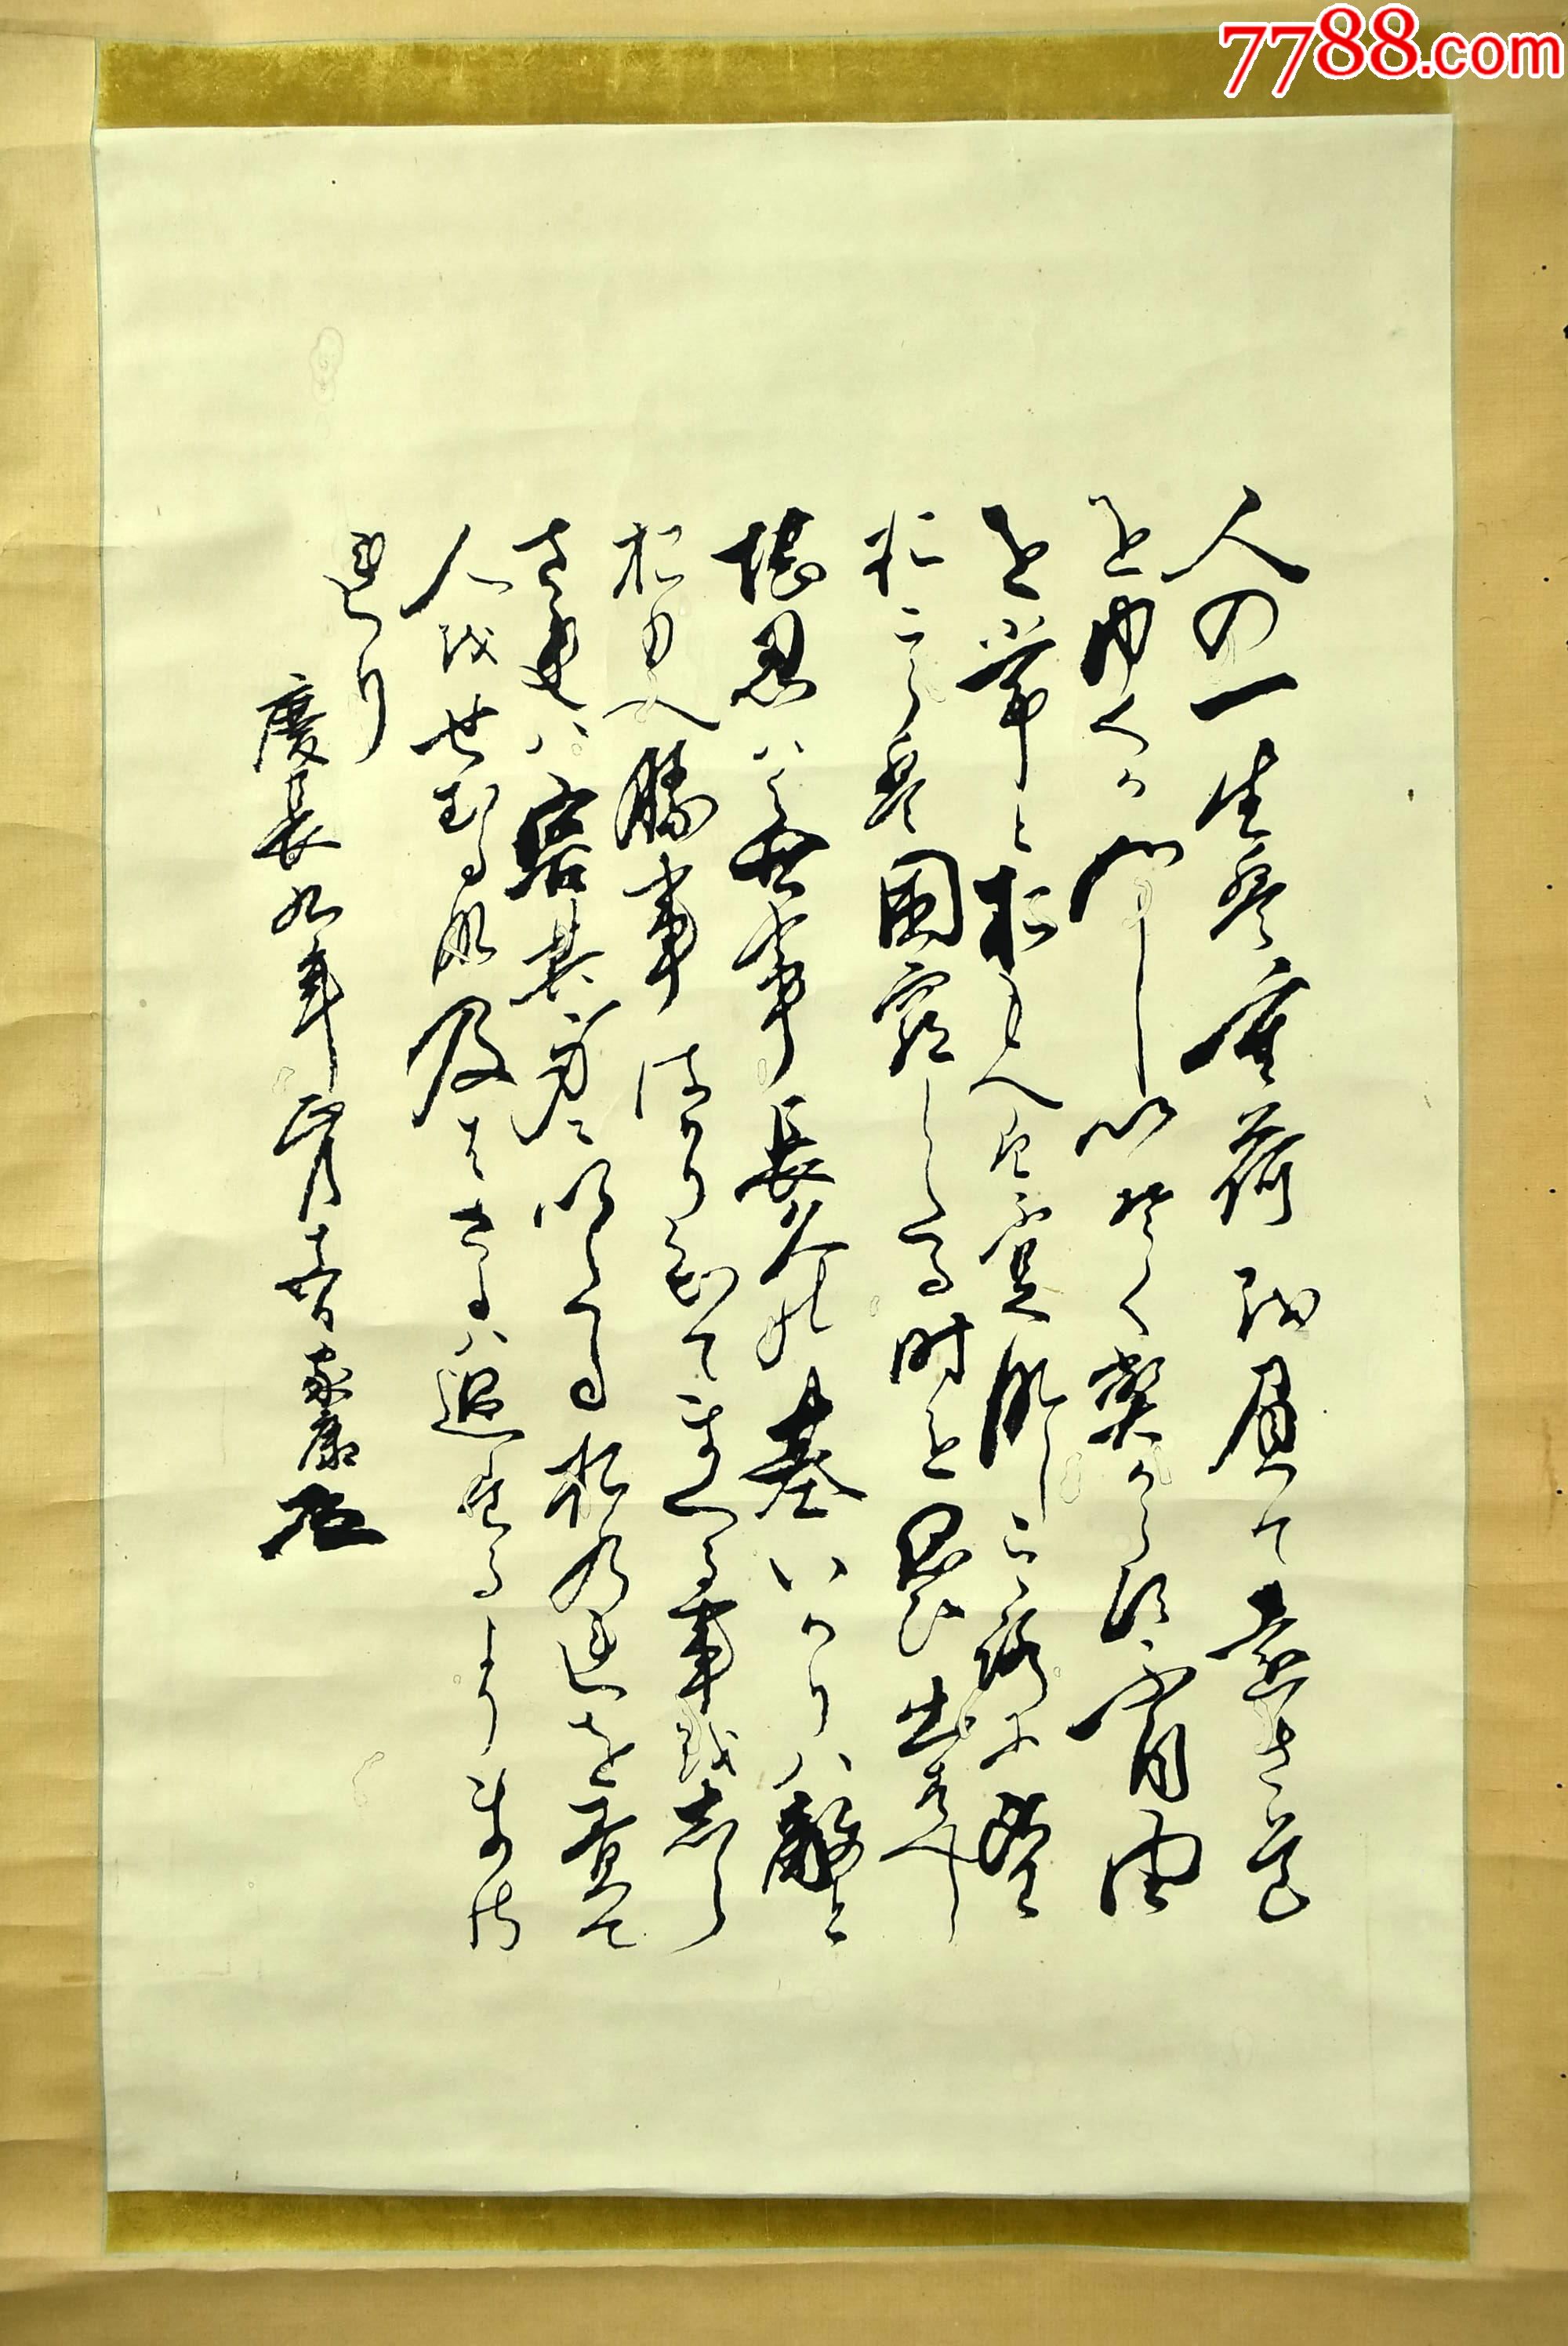 7788.com
人の一生は重荷を負て遠き道
をゆくか如しいそくへからす不自由
を常とおもへは不足なしこゝろに望
おこらは困窮したる時を思ひ出すへし
堪忍ハ無事長久の基いかりハ敵と
おもへ勝事はかり知てまくる事をしら
されハ害其身にいたるおのれを責て
人をせむるな及はさるハ過たるよりまさ
れり
慶長九年正月十五日家康